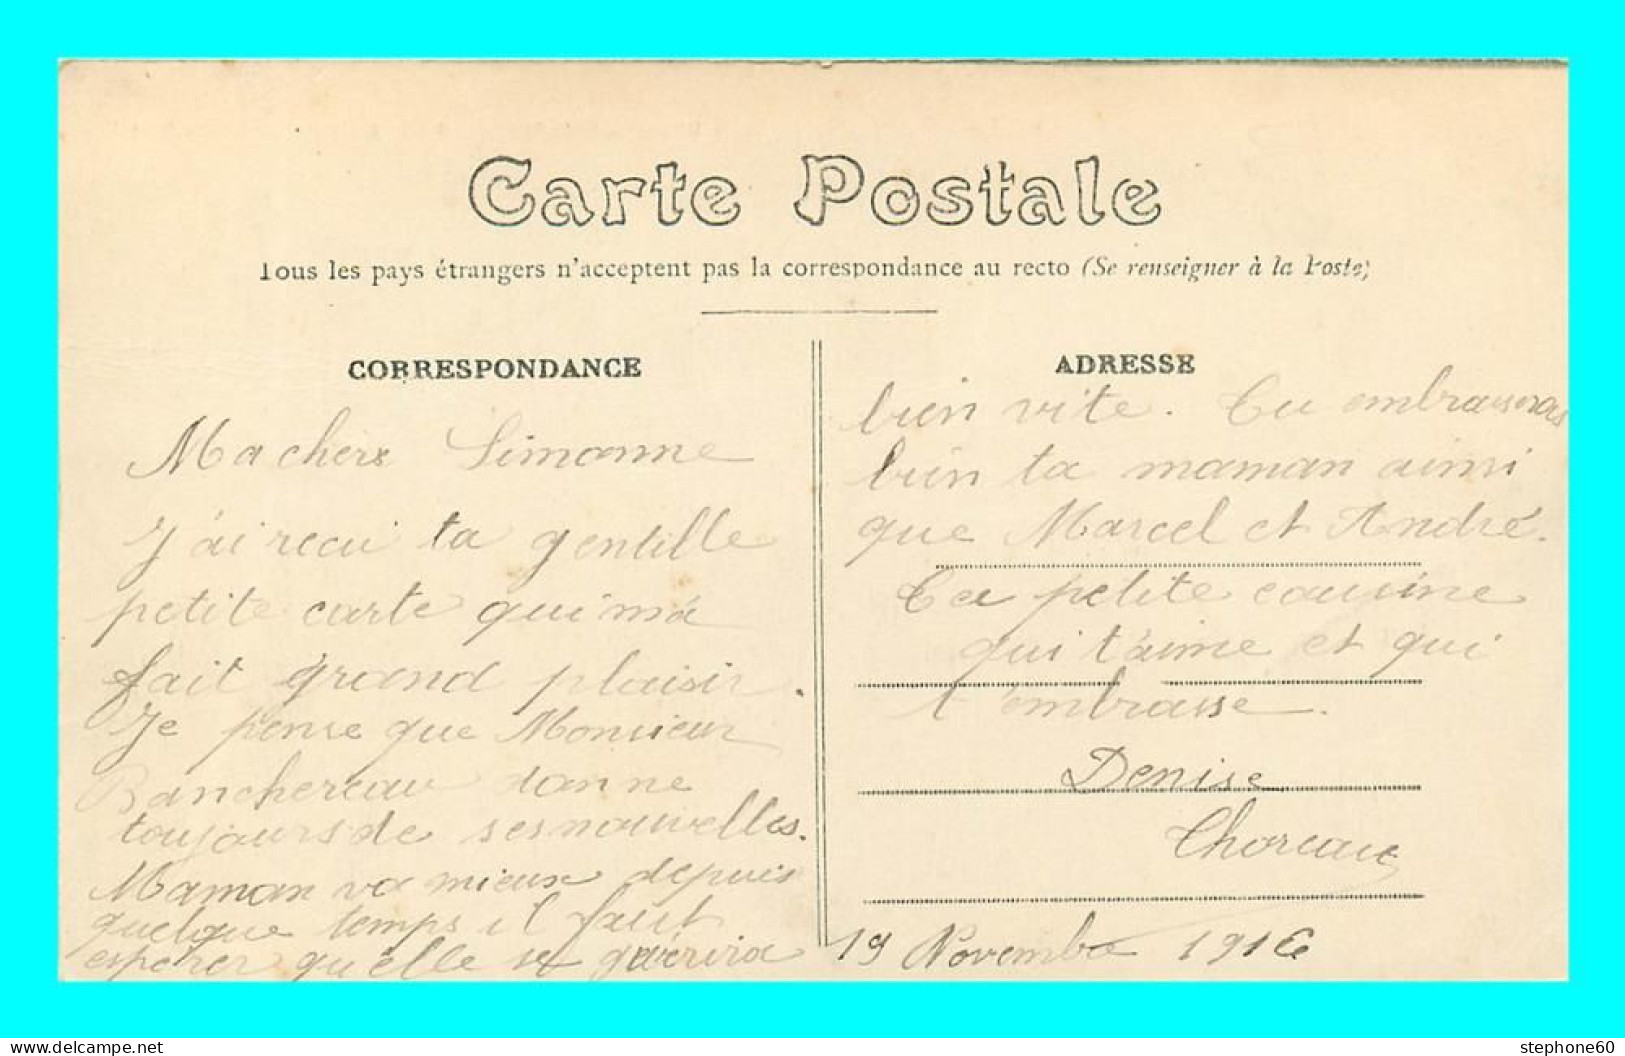 Carte Postale
Tous les pays étrangers n'acceptent pas la correspondance au recto (Se renseigner à la Poste)
CORRESPONDANCE
Ma chere Simonne
J'ai recu ta gentille
petite carte qui m'a
fait grand plaisir.
Je pense que Monsieur
Banchereau donne
toujours de ses nouvelles.
Maman va mieux depuis
quelque temps il faut
esperer qu'elle se guérira
ADRESSE
bien vite. Tu embrasseras
bien ta maman ainsi
que Marcel et André.
Ta petite cousine
qui t'aime et qui
t'embrasse.
Denise
Choreau
19 Novembre 1916
stephone60
www.delcampe.net